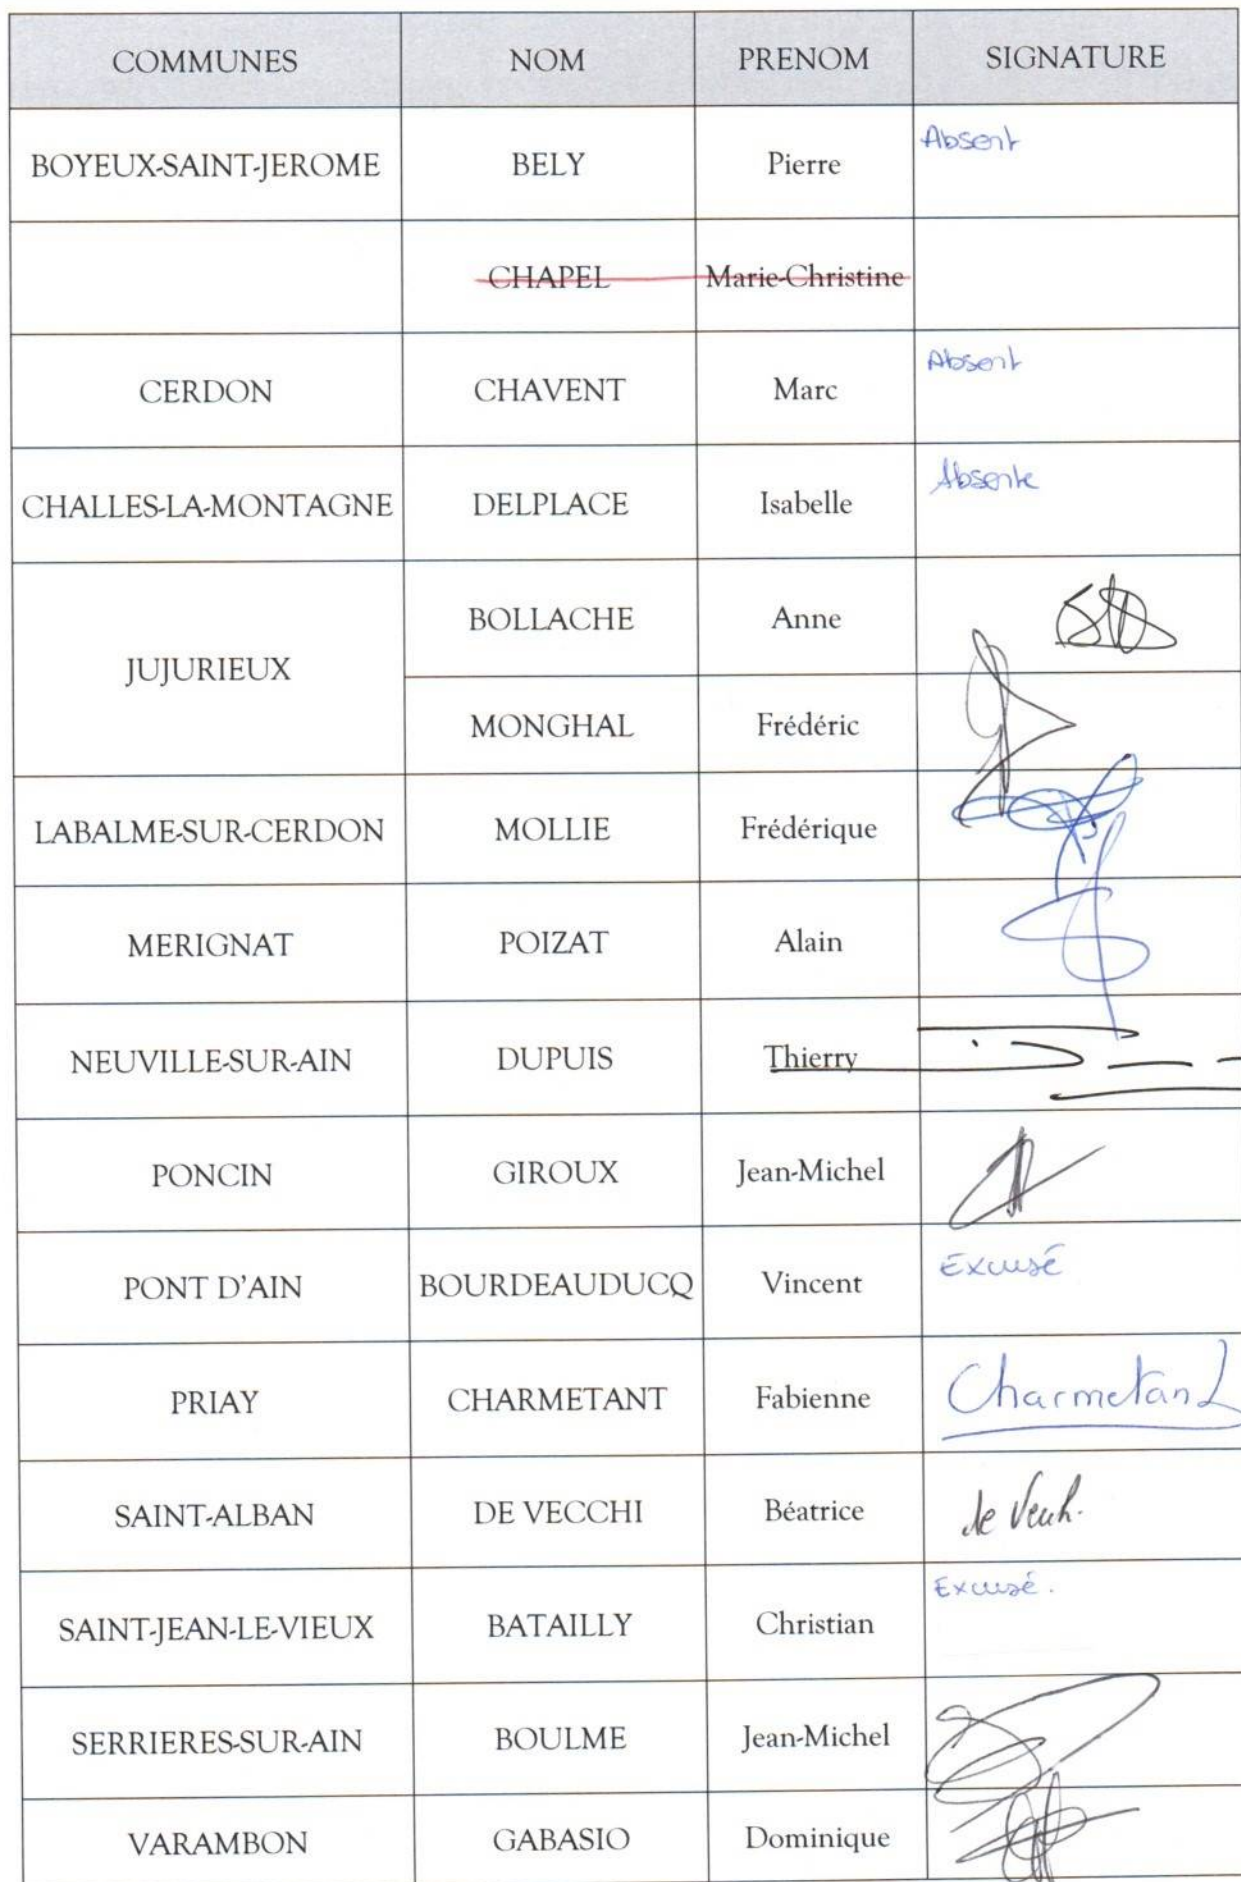 COMMUNES NOM PRENOM SIGNATURE
BOYEUX-SAINT-JEROME BELY Pierre Absent
CHAPEL Marie-Christine
CERDON CHAVENT Marc Absent
CHALLES-LA-MONTAGNE DELPLACE Isabelle Absente
JUJURIEUX
BOLLACHE Anne
MONGHAL Frédéric
LABALME-SUR-CERDON MOLLIE Frédérique
MERIGNAT POIZAT Alain
NEUVILLE-SUR-AIN DUPUIS Thierry
PONCIN GIROUX Jean-Michel
PONT D'AIN BOURDEAUDUCQ Vincent Excusé
PRIAY CHARMETANT Fabienne Charmetant
SAINT-ALBAN DE VECCHI Béatrice
SAINT-JEAN-LE-VIEUX BATAILLY Christian Excusé.
SERRIERES-SUR-AIN BOULME Jean-Michel
VARAMBON GABASIO Dominique